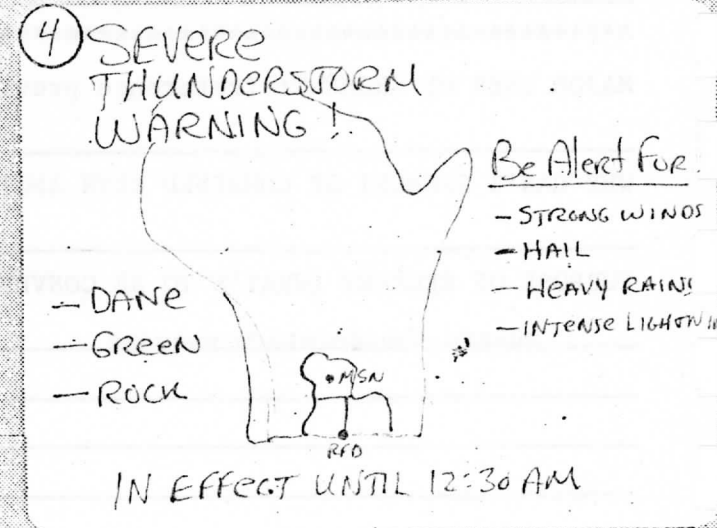 4 SEVERE
THUNDERSTORM
WARNING!
Be Alert For
- STRONG WINDS
- HAIL
- HEAVY RAINS
- INTENSE LIGHTNIN
- DANE
- GREEN
- ROCK
MSN
RFD
IN EFFECT UNTIL 12:30 AM